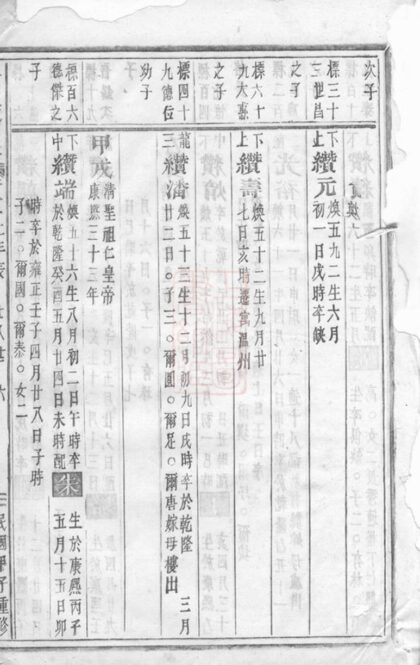 次子
標三十三世昌之子
上
下
纘元
煥五九二生六月
初一日戌時卒缺
標六十九大惠之子
上
下
纘壽
煥五十二生九月廿
七日亥時遷當溫州
標四十九德位幼子
三
龍
纘濱
煥五十三生十二月初九日戌時卒於乾隆
三月
廿二日○子三○爾圓○爾足○爾唐嫁母樓出
甲戌
清聖祖仁皇帝
康熙三十三年
標百六德傑之子
中
下
纘端
煥五十六生八月初二日午時卒
於乾隆癸酉五月廿四日未時配
朱
生於康熙丙子
五月十五日卯
時卒於雍正壬子四月廿八日子時
子二○爾國○爾泰○女二
民國甲子重修